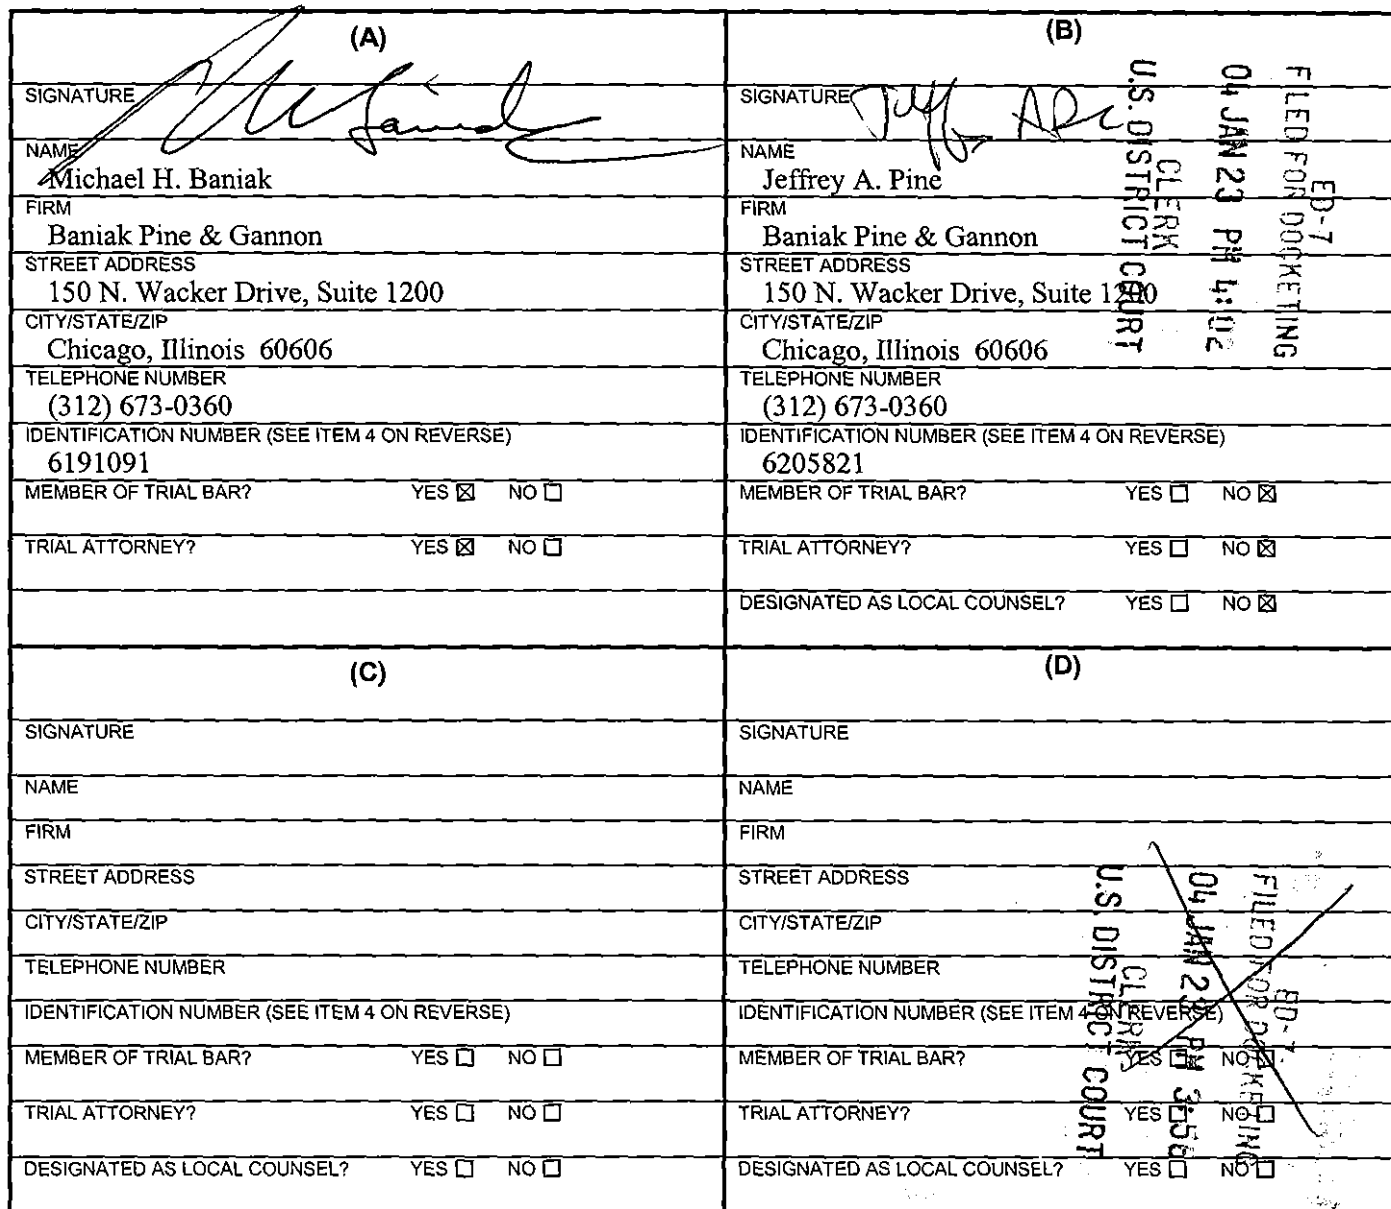 (A)
SIGNATURE
NAME
Michael H. Baniak
FIRM
Baniak Pine & Gannon
STREET ADDRESS
150 N. Wacker Drive, Suite 1200
CITY/STATE/ZIP
Chicago, Illinois 60606
TELEPHONE NUMBER
(312) 673-0360
IDENTIFICATION NUMBER (SEE ITEM 4 ON REVERSE)
6191091
MEMBER OF TRIAL BAR? YES ☒ NO ☐
TRIAL ATTORNEY? YES ☒ NO ☐
(B)
SIGNATURE
NAME
Jeffrey A. Pine
FIRM
Baniak Pine & Gannon
STREET ADDRESS
150 N. Wacker Drive, Suite 1200
CITY/STATE/ZIP
Chicago, Illinois 60606
TELEPHONE NUMBER
(312) 673-0360
IDENTIFICATION NUMBER (SEE ITEM 4 ON REVERSE)
6205821
MEMBER OF TRIAL BAR? YES ☐ NO ☒
TRIAL ATTORNEY? YES ☐ NO ☒
DESIGNATED AS LOCAL COUNSEL? YES ☐ NO ☒
FILED FOR DOCKETING
ED-7
04 JAN 23 PM 4:02
CLERK
U.S. DISTRICT COURT
(C)
SIGNATURE
NAME
FIRM
STREET ADDRESS
CITY/STATE/ZIP
TELEPHONE NUMBER
IDENTIFICATION NUMBER (SEE ITEM 4 ON REVERSE)
MEMBER OF TRIAL BAR? YES ☐ NO ☐
TRIAL ATTORNEY? YES ☐ NO ☐
DESIGNATED AS LOCAL COUNSEL? YES ☐ NO ☐
(D)
SIGNATURE
NAME
FIRM
STREET ADDRESS
CITY/STATE/ZIP
TELEPHONE NUMBER
IDENTIFICATION NUMBER (SEE ITEM 4 ON REVERSE)
MEMBER OF TRIAL BAR? YES ☐ NO ☐
TRIAL ATTORNEY? YES ☐ NO ☐
DESIGNATED AS LOCAL COUNSEL? YES ☐ NO ☐
FILED FOR DOCKETING
ED-7
04 JAN 23 PM
CLERK
U.S. DISTRICT COURT